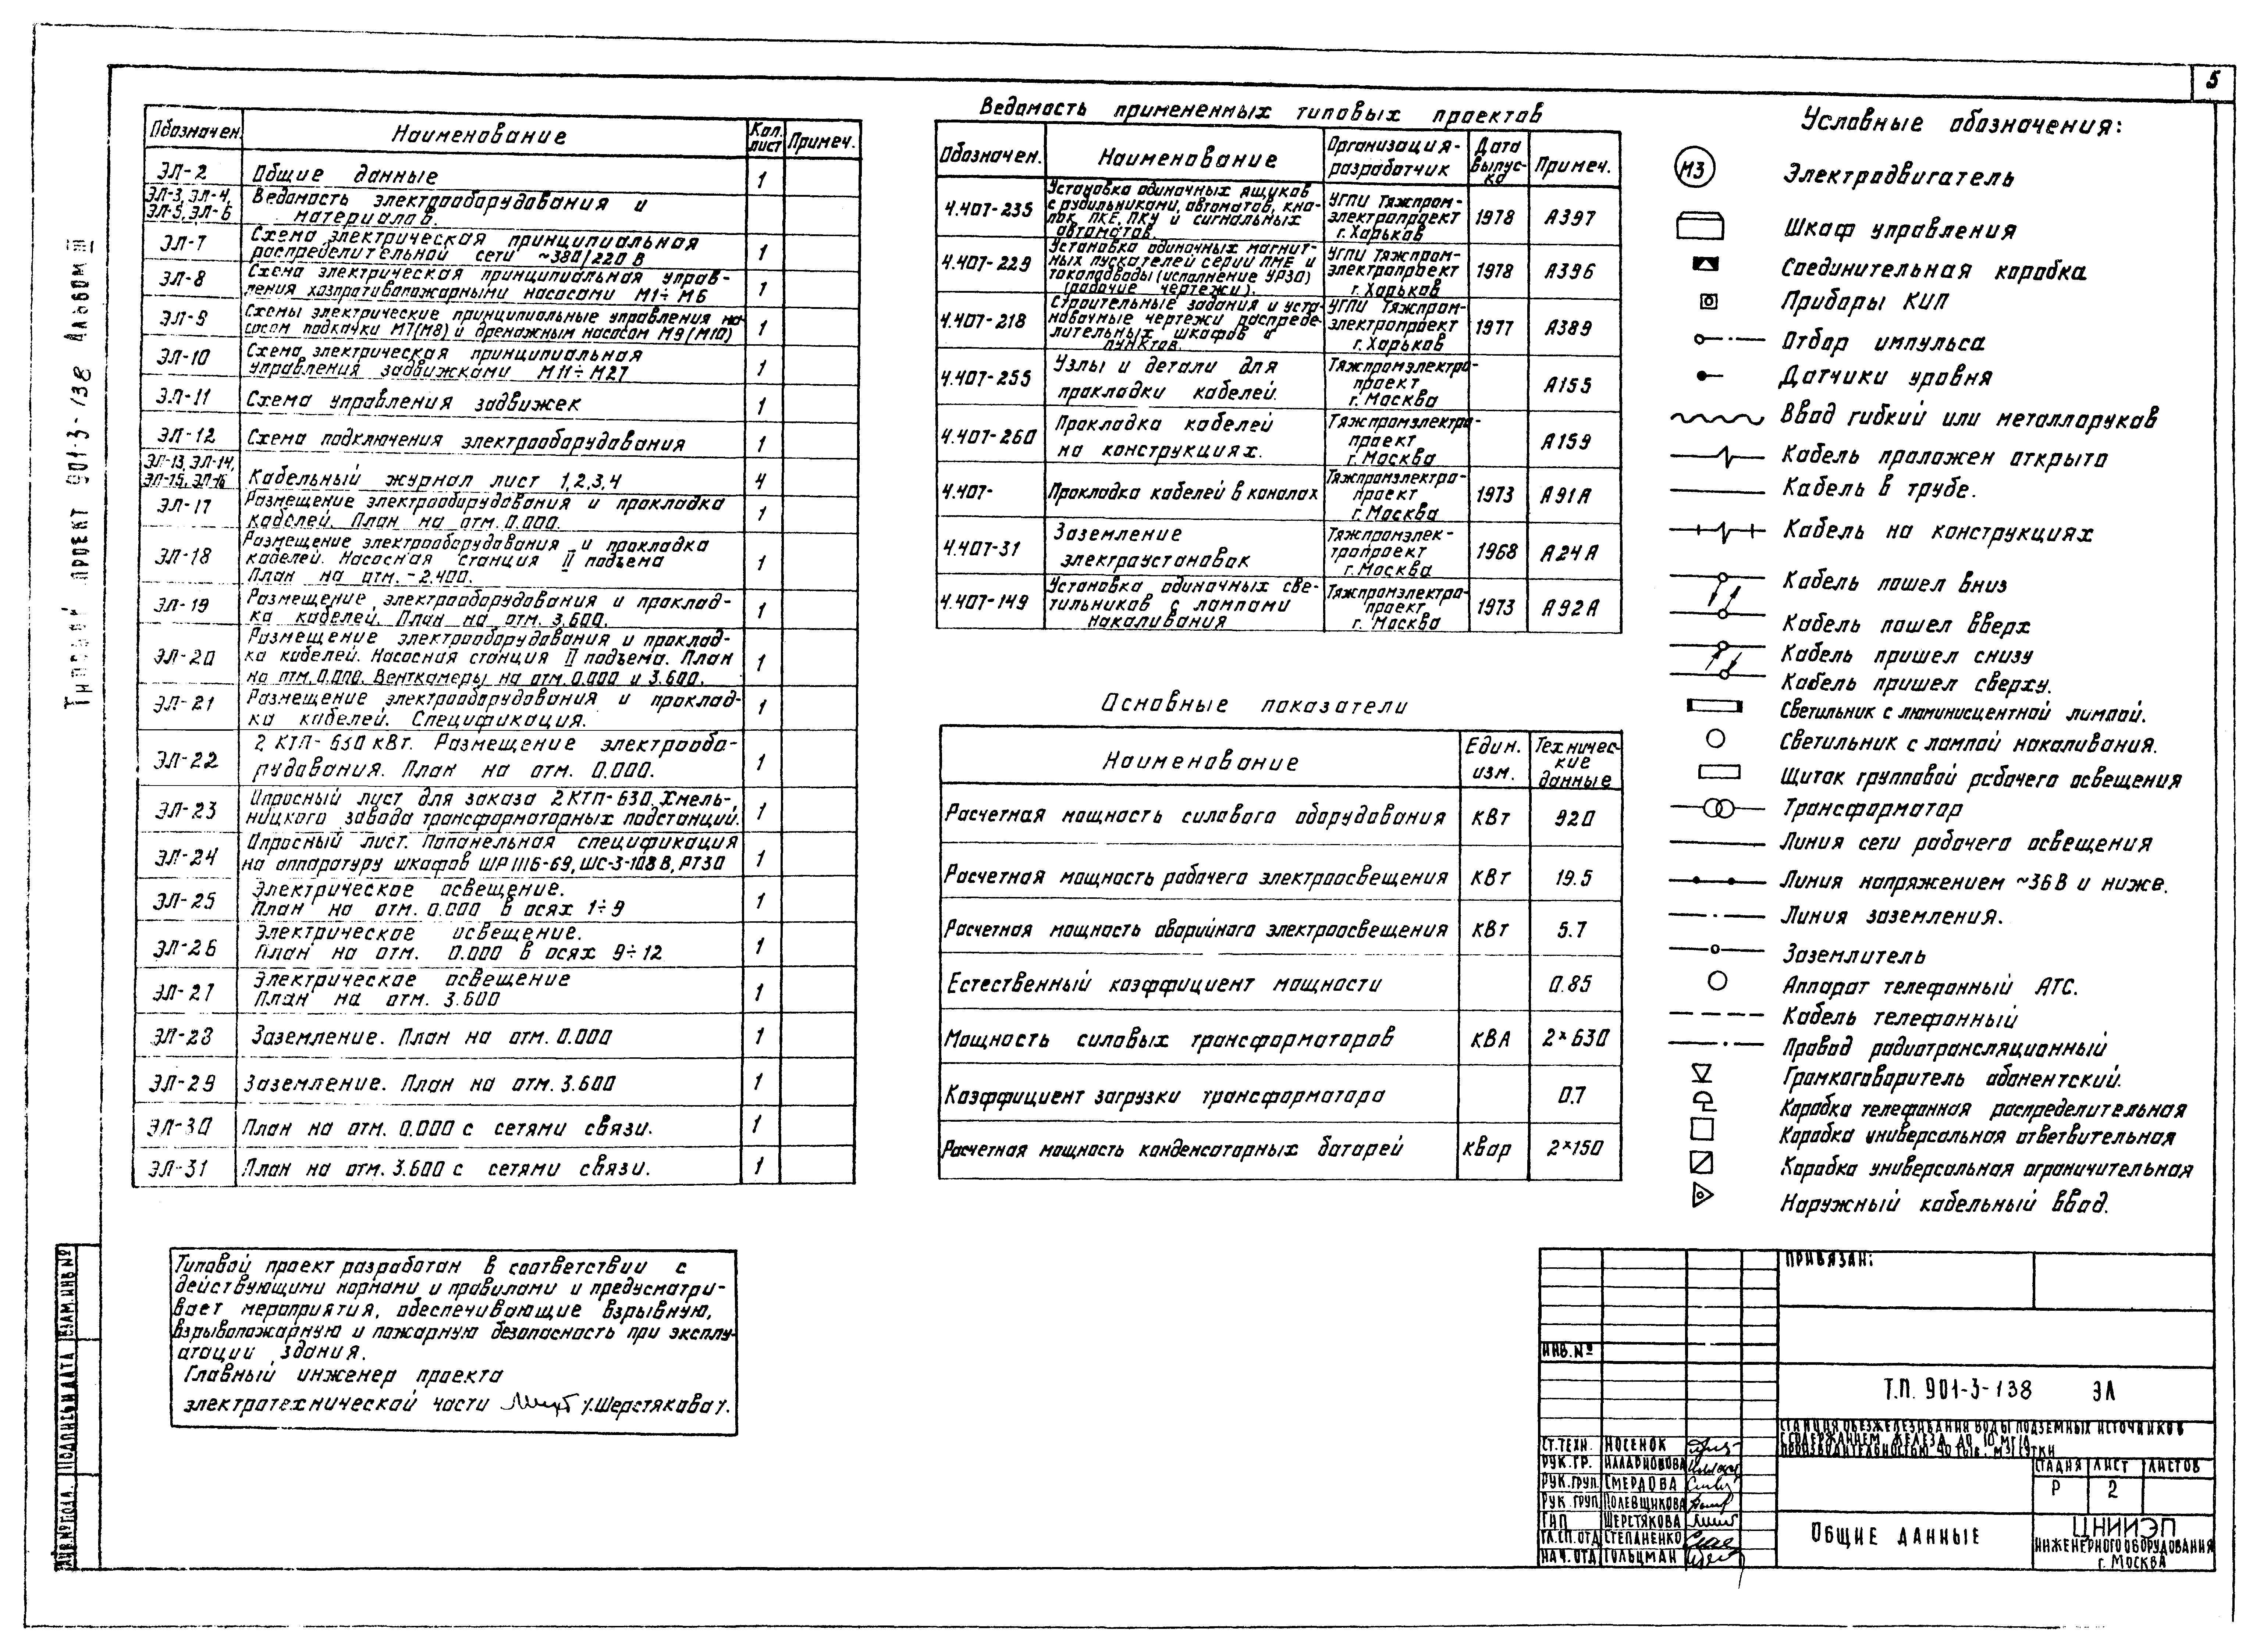 5
Типовой проект 901-3-138 Альбом III
Обозначен. Наименование Кол. лист Примеч.
ЭЛ-2 Общие данные 1
ЭЛ-3, ЭЛ-4, ЭЛ-5, ЭЛ-6 Ведомость электрооборудования и
материалов.
ЭЛ-7 Схема электрическая принципиальная
распределительной сети ~380/220 В 1
ЭЛ-8 Схема электрическая принципиальная управ-
ления хозпротивопожарными насосами М1÷М6 1
ЭЛ-9 Схемы электрические принципиальные управления на-
сосом подкачки М7(М8) и дренажным насосом М9(М10) 1
ЭЛ-10 Схема электрическая принципиальная
управления задвижками М11÷М27 1
ЭЛ-11 Схема управления задвижек 1
ЭЛ-12 Схема подключения электрооборудования 1
ЭЛ-13, ЭЛ-14,
ЭЛ-15, ЭЛ-16 Кабельный журнал лист 1,2,3,4 4
ЭЛ-17 Размещение электрооборудования и прокладка
кабелей. План на отм. 0.000. 1
ЭЛ-18 Размещение электрооборудования и прокладка
кабелей. Насосная станция II подъема
План на отм. -2.400. 1
ЭЛ-19 Размещение электрооборудования и проклад-
ка кабелей. План на отм. 3.600. 1
ЭЛ-20 Размещение электрооборудования и проклад-
ка кабелей. Насосная станция II подъема. План
на отм. 0.000. Венткамеры на отм. 0.000 и 3.600. 1
ЭЛ-21 Размещение электрооборудования и проклад-
ка кабелей. Спецификация. 1
ЭЛ-22 2 КТП-630 кВт. Размещение электрообо-
рудования. План на отм. 0.000. 1
ЭЛ-23 Опросный лист для заказа 2КТП-630. Хмель-
ницкого завода трансформаторных подстанций. 1
ЭЛ-24 Опросный лист. Попанельная спецификация
на аппаратуру шкафов ШР1116-69, ШС-3-108В, РТ30 1
ЭЛ-25 Электрическое освещение.
План на отм. 0.000 в осях 1÷9 1
ЭЛ-26 Электрическое освещение.
План на отм. 0.000 в осях 9÷12 1
ЭЛ-27 Электрическое освещение
План на отм. 3.600 1
ЭЛ-28 Заземление. План на отм. 0.000 1
ЭЛ-29 Заземление. План на отм. 3.600 1
ЭЛ-30 План на отм. 0.000 с сетями связи. 1
ЭЛ-31 План на отм. 3.600 с сетями связи. 1
Типовой проект разработан в соответствии с
действующими нормами и правилами и предусматри-
вает мероприятия, обеспечивающие взрывную,
взрывопожарную и пожарную безопасность при эксплу-
атации здания.
Главный инженер проекта
электротехнической части /Шерстякова/.
Ведомость примененных типовых проектов
Обозначен. Наименование Организация-разработчик Дата выпус-ка Примеч.
4.407-235 Установка одиночных ящиков
с рубильниками, автоматов, кно-
пок ПКЕ, ПКУ и сигнальных
автоматов. УГПИ Тяжпром-
электропроект
г. Харьков 1978 А397
4.407-229 Установка одиночных магнит-
ных пускателей серии ПМЕ и
токоподводы (исполнение УР30)
(рабочие чертежи). УГПИ Тяжпром-
электропроект
г. Харьков 1978 А396
4.407-218 Строительные задания и уста-
новочные чертежи распреде-
лительных шкафов и
пунктов. УГПИ Тяжпром-
электропроект
г. Харьков 1977 А389
4.407-255 Узлы и детали для
прокладки кабелей. Тяжпромэлектро-
проект
г. Москва А155
4.407-260 Прокладка кабелей
на конструкциях. Тяжпромэлектро-
проект
г. Москва А159
4.407- Прокладка кабелей в каналах Тяжпромэлектро-
проект
г. Москва 1973 А91А
4.407-31 Заземление
электроустановок Тяжпромэлек-
тропроект
г. Москва 1968 А24А
4.407-149 Установка одиночных све-
тильников с лампами
накаливания Тяжпромэлектро-
проект
г. Москва 1973 А92А
Основные показатели
Наименование Един. изм. Техничес-кие данные
Расчетная мощность силового оборудования кВт 920
Расчетная мощность рабочего электроосвещения кВт 19.5
Расчетная мощность аварийного электроосвещения кВт 5.7
Естественный коэффициент мощности 0.85
Мощность силовых трансформаторов кВА 2×630
Коэффициент загрузки трансформатора 0.7
Расчетная мощность конденсаторных батарей квар 2×150
Условные обозначения:
М3 Электродвигатель
Шкаф управления
Соединительная коробка
Приборы КИП
Отбор импульса
Датчики уровня
Ввод гибкий или металлорукав
Кабель проложен открыто
Кабель в трубе.
Кабель на конструкциях
Кабель пошел вниз
Кабель пошел вверх
Кабель пришел снизу
Кабель пришел сверху.
Светильник с люминисцентной лампой.
Светильник с лампой накаливания.
Щиток групповой рабочего освещения
Трансформатор
Линия сети рабочего освещения
Линия напряжением ~36В и ниже.
Линия заземления.
Заземлитель
Аппарат телефонный АТС.
Кабель телефонный
Провод радиотрансляционный
Громкоговоритель абонентский.
Коробка телефонная распределительная
Коробка универсальная ответвительная
Коробка универсальная ограничительная
Наружный кабельный ввод.
Привязан:
Инв.№
Т.П. 901-3-138 ЭЛ
Станция обезжелезивания воды подземных источников
с содержанием железа до 10 мг/л
производительностью 40 тыс. м3/сутки
Стадия Лист Листов
Р 2
Общие данные
ЦНИИЭП
инженерного оборудования
г. Москва
Ст.техн. Носенок
Рук.гр. Илларионова
Рук.груп. Смердова
Рук.груп. Полевщикова
ГИП Шерстякова
Гл.сп.отд Степаненко
Нач.отд. Гольцман
Инв.№ подл. Подпись и дата Взам.инв.№